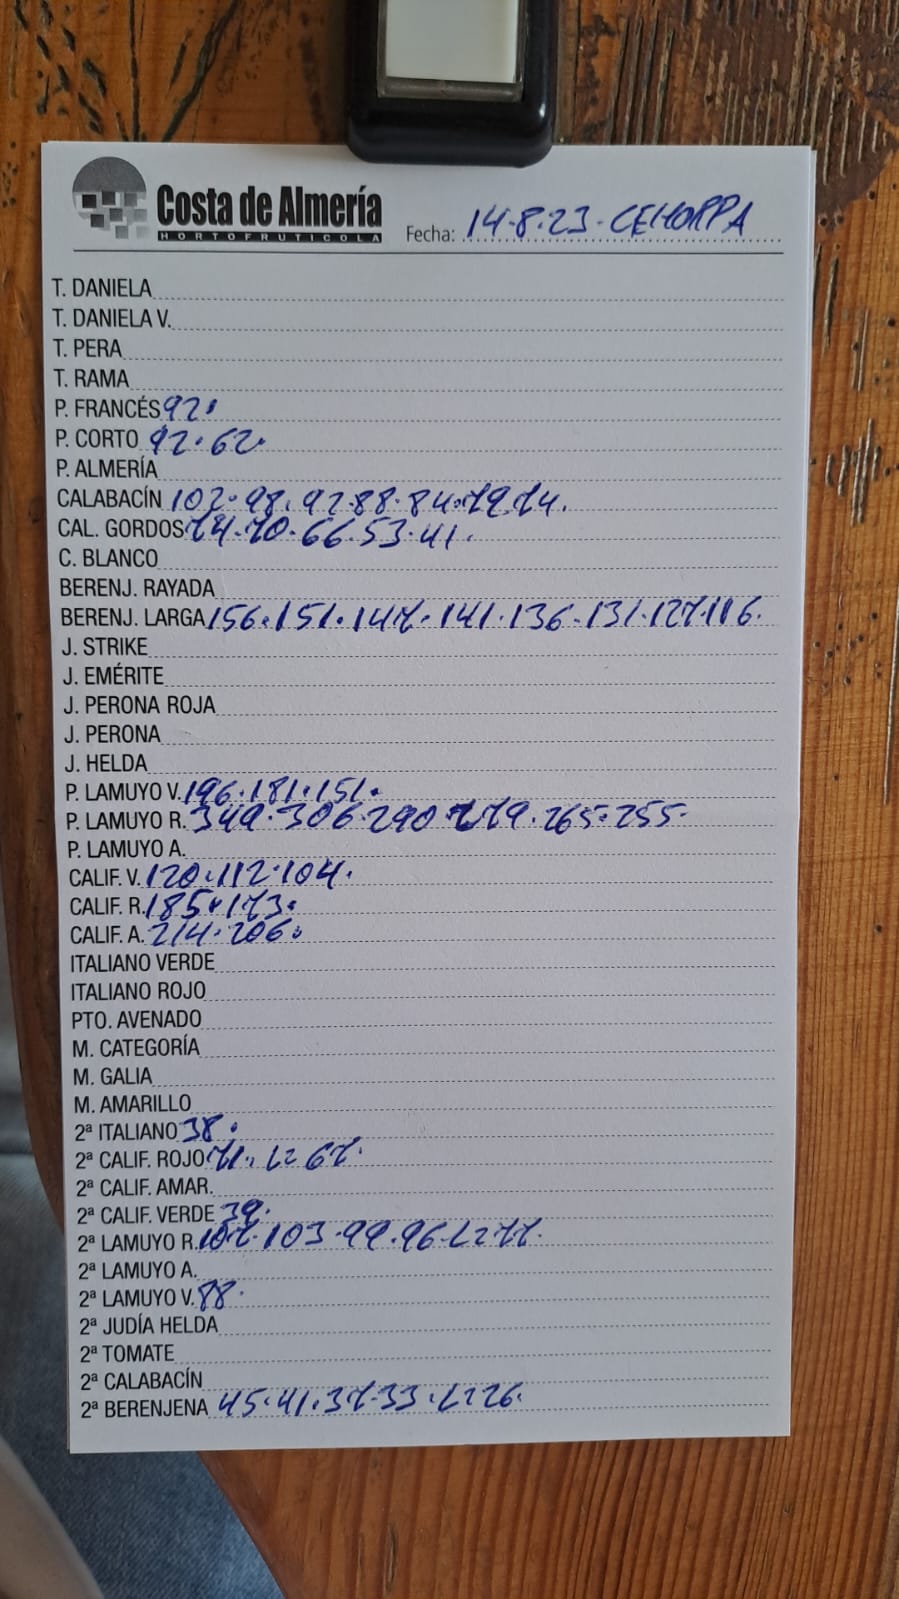 Costa de Almería
HORTOFRUTICOLA
Fecha: 14-8-23-CEHORPA
T. DANIELA
T. DANIELA V.
T. PERA
T. RAMA
P. FRANCÉS 92.
P. CORTO 92.62.
P. ALMERÍA
CALABACÍN 102.98.92.88.84.79.74.
CAL. GORDOS 74.70.66.53.41.
C. BLANCO
BERENJ. RAYADA
BERENJ. LARGA 156.151.147.141.136.131.127.116.
J. STRIKE
J. EMÉRITE
J. PERONA ROJA
J. PERONA
J. HELDA
P. LAMUYO V. 196.181.151.
P. LAMUYO R. 349.306.290.279.265.255.
P. LAMUYO A.
CALIF. V. 120.112.104.
CALIF. R. 185.173.
CALIF. A. 214.206.
ITALIANO VERDE
ITALIANO ROJO
PTO. AVENADO
M. CATEGORÍA
M. GALIA
M. AMARILLO
2ª ITALIANO 38.
2ª CALIF. ROJO 71. L2 67.
2ª CALIF. AMAR.
2ª CALIF. VERDE 39.
2ª LAMUYO R. 107.103.99.96.L2 77.
2ª LAMUYO A.
2ª LAMUYO V. 88.
2ª JUDÍA HELDA
2ª TOMATE
2ª CALABACÍN
2ª BERENJENA 45.41.37.33.L2 26.